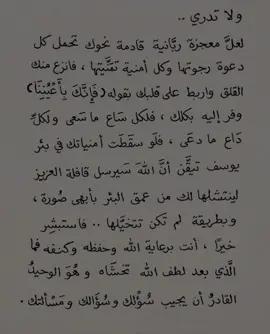 ولا تدري ..
لعلَّ معجزة ربَّانية قادمة نحوك تحمل كل
دعوة رجوتها وكل أمنية تمنَّيتها ، فانزع منك
القلق واربط على قلبك بقوله (فَإِنَّكَ بِأَعْيُنِنَا)
وفر إليه بكلك ، فلكل سَاع ما سَعى ولكلِّ
دَاع ما دعَى ، فلَو سقَطَت أمنياتك في بئر
يوسف تيقَّن أنَّ اللهَ سيرسل قافلة العزيز
لينتشلها لك من عمق البئر بأبهى صُورة ،
وبطريقة لم تَكن تتخيَّلها .. فاستبشِر
خيرًا ، أنت برعاية الله وحفظه وكنفه فما
الَّذي بعد لطف الله تخشَاه وهُوَ الوحيدُ
القادرُ أن يجيب سُؤْلك وسُؤَالك ومَسْألتك .